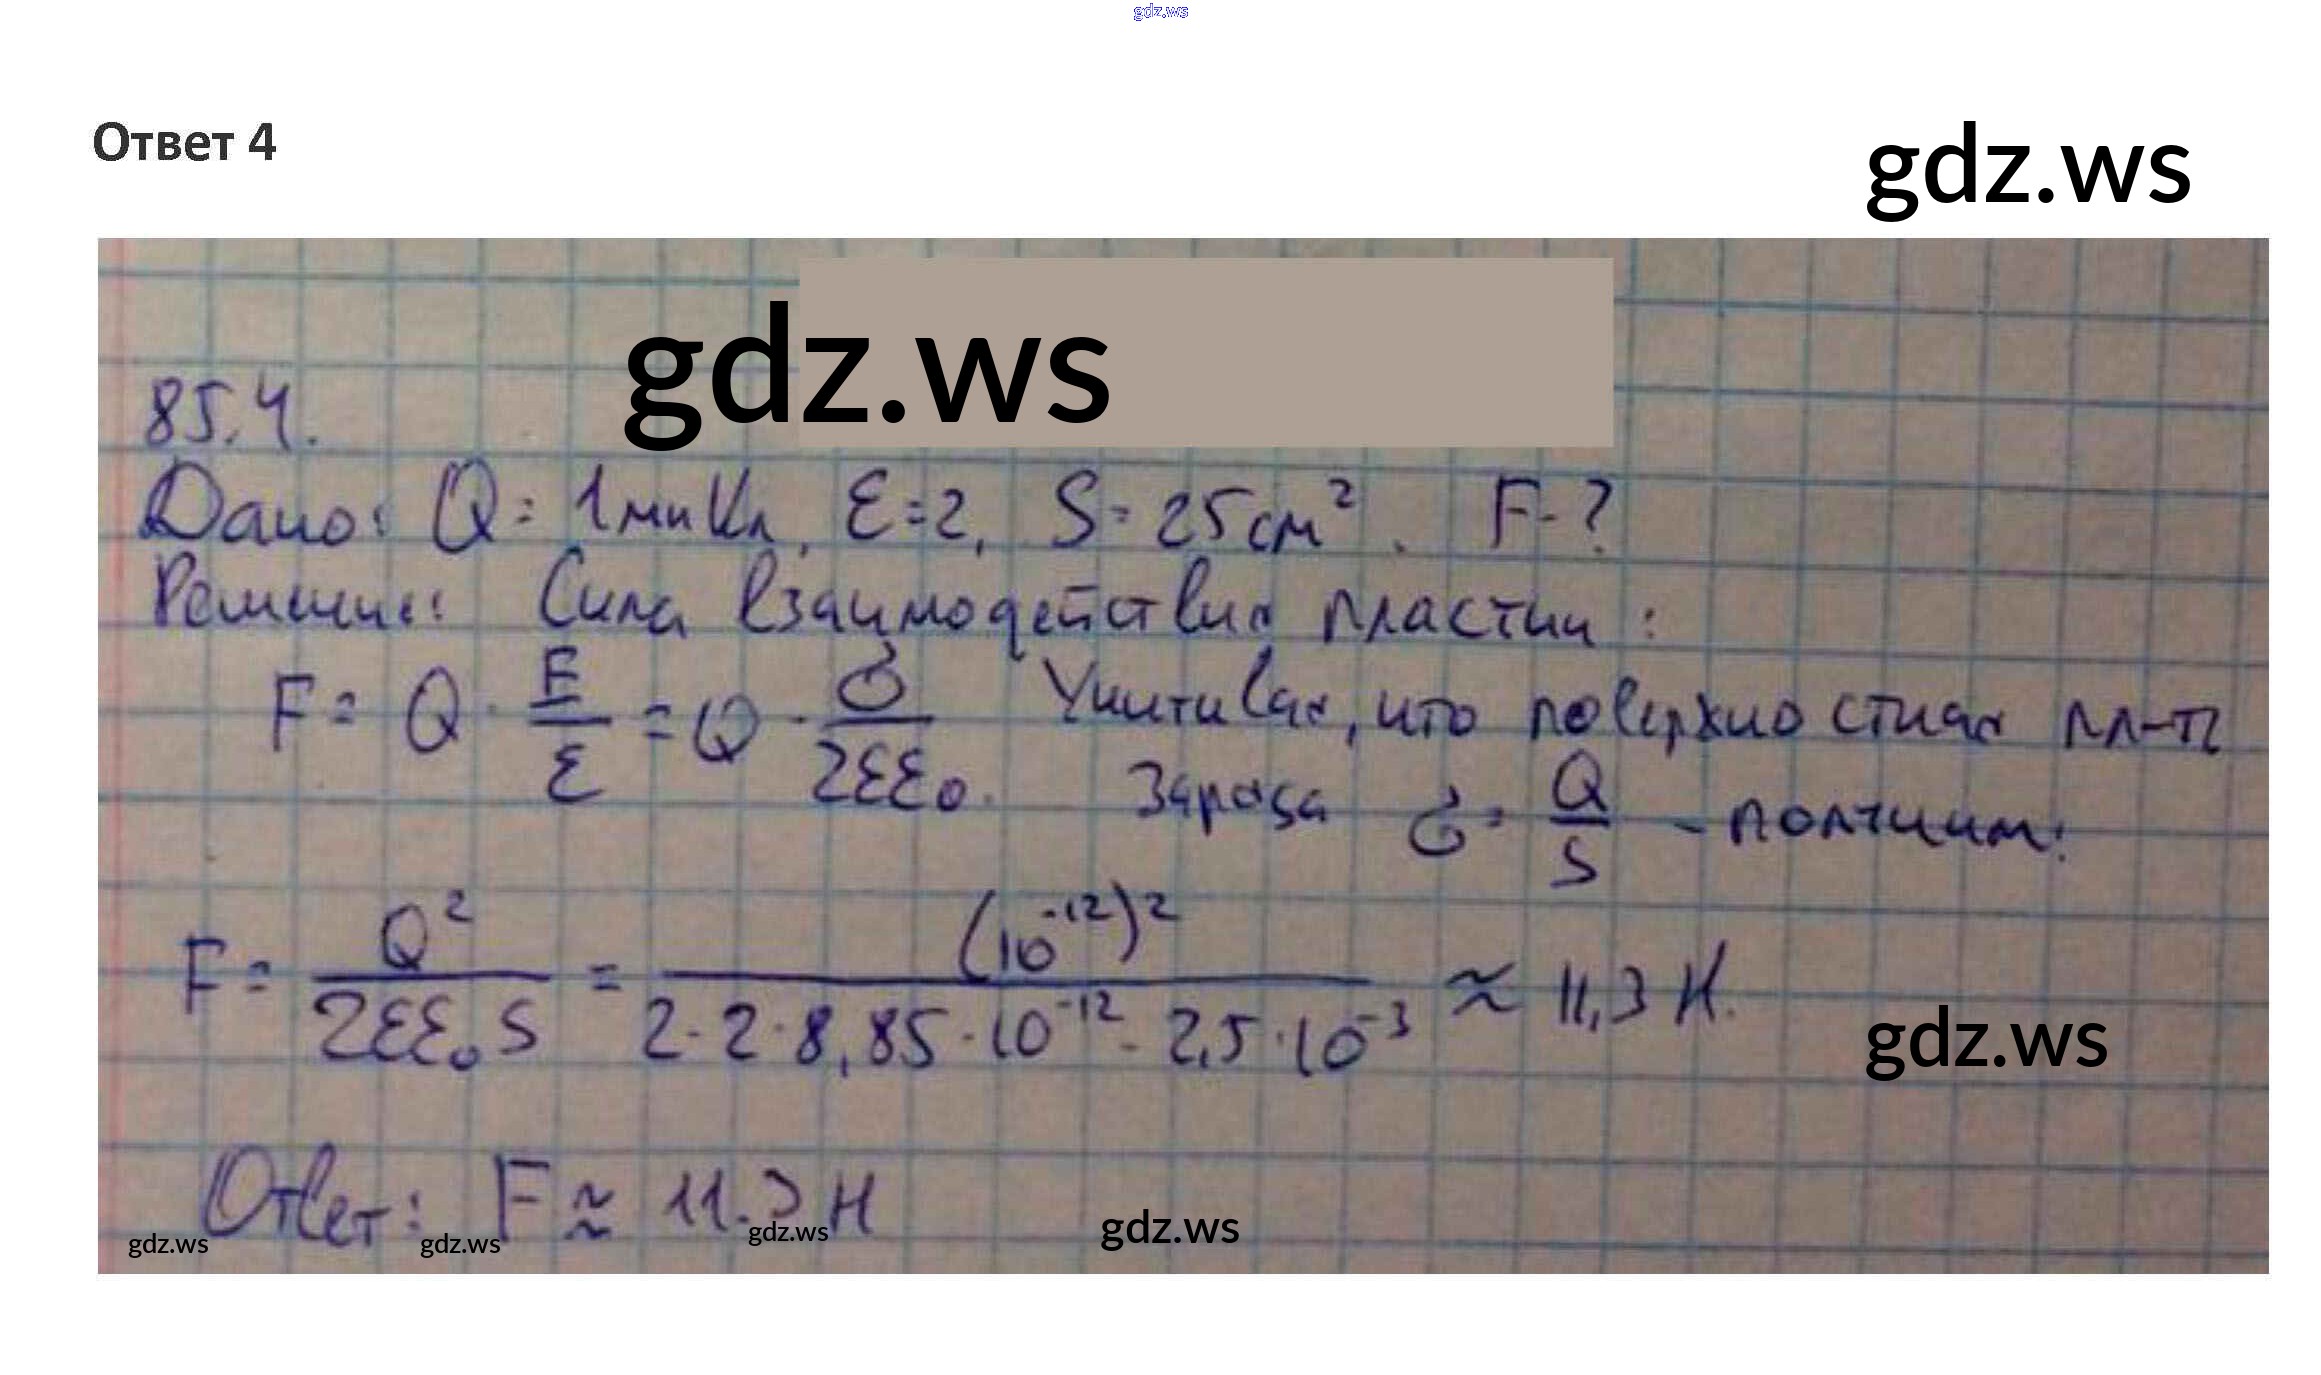 gdz.ws
Ответ 4
gdz.ws
gdz.ws
85.4.
Дано: Q = 1мкКл, ε=2, S=25см². F-?
Решение: Сила взаимодействия пластин:
F = Q · E/ε = Q · σ/2εε₀. Учитывая, что поверхностная пл-ть
заряда σ = Q/S - получим:
F = Q²/2εε₀S = (10⁻¹²)²/2·2·8,85·10⁻¹²·2,5·10⁻³ ≈ 11,3 Н.
gdz.ws
Ответ: F ≈ 11.3 Н
gdz.ws gdz.ws gdz.ws gdz.ws